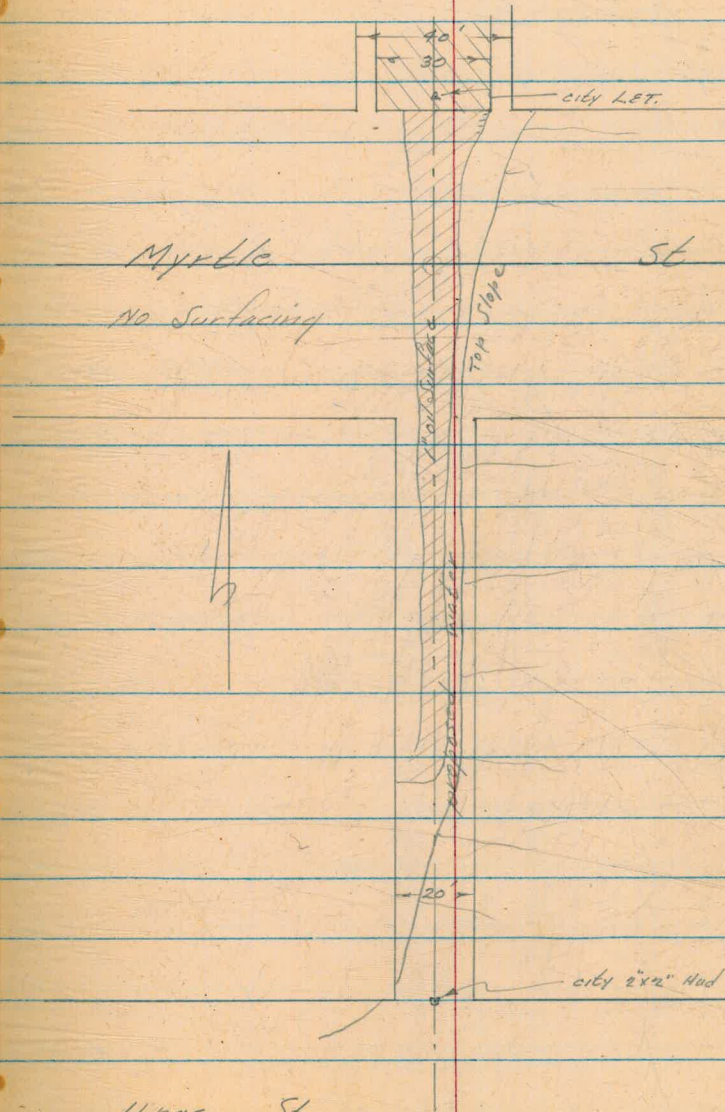 40'
30
city L&T.
Myrtle St
No Surfacing
Top Slope
1" oil Surface
proposed water
20'
city 2"x2" Hub
St